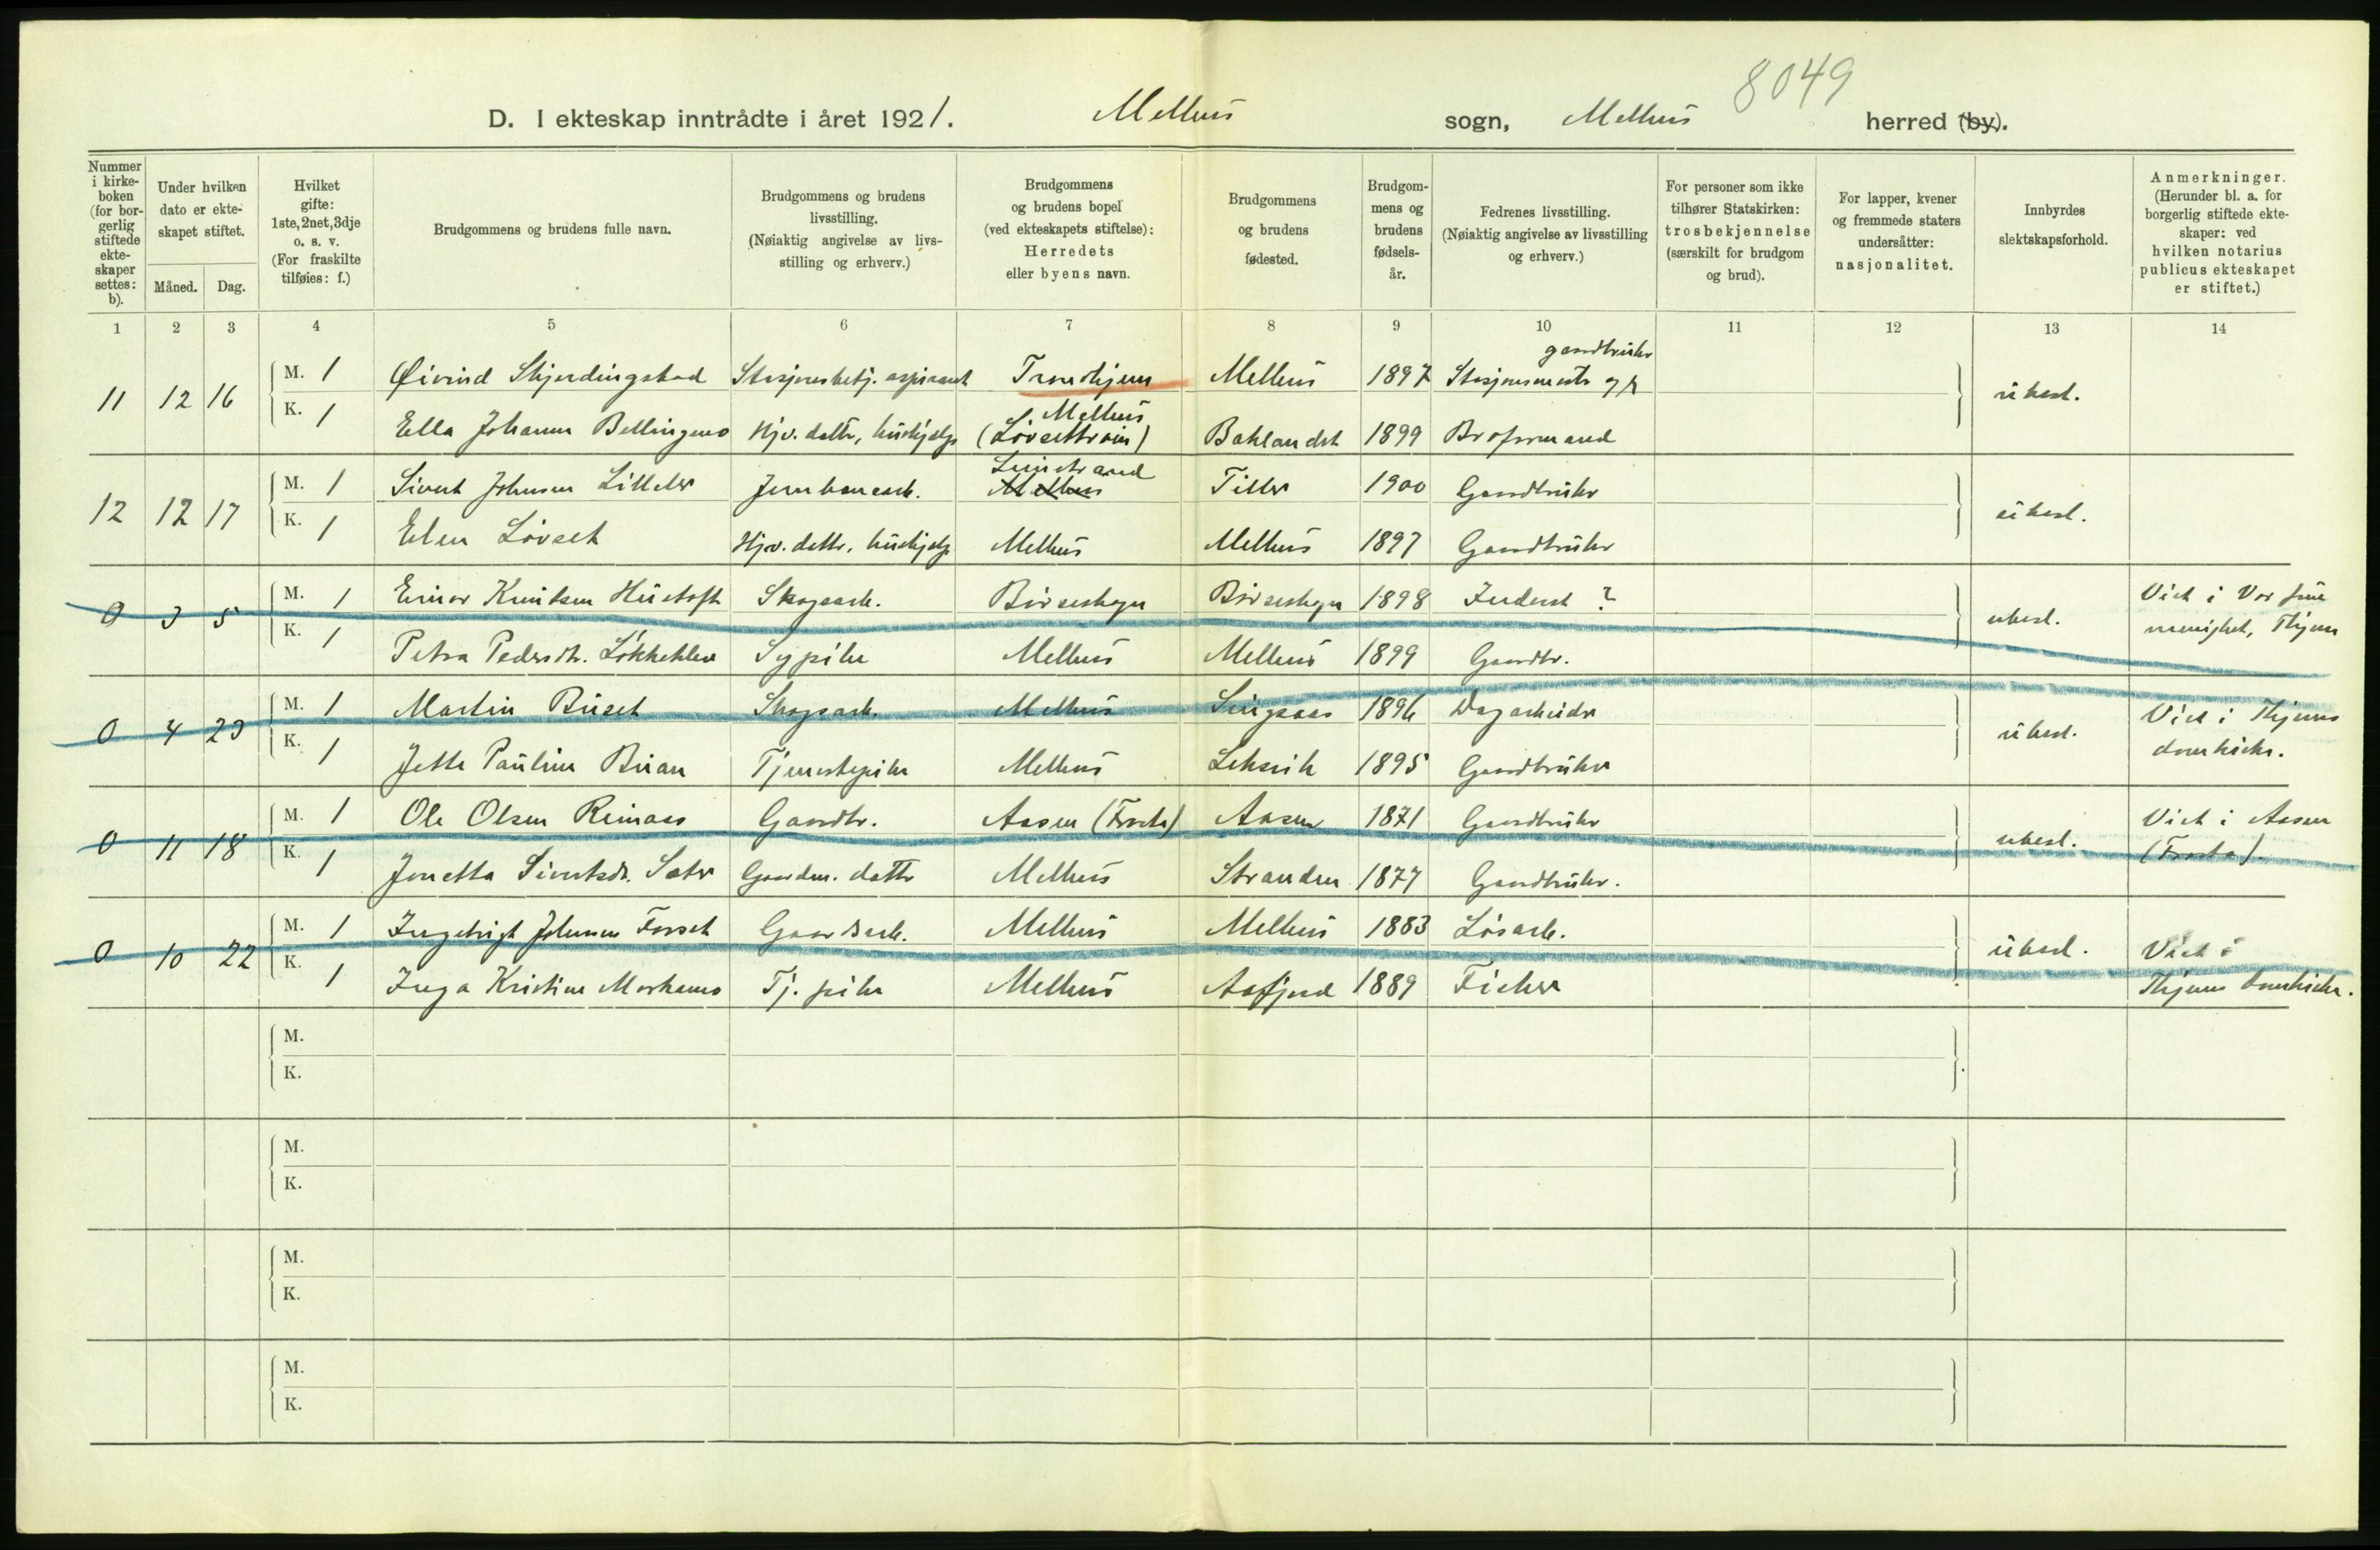 8049
D. I ekteskap inntrådte i året 1921. Melhus sogn, Melhus herred (by).
Nummer i kirke- boken (for bor- gerlig stiftede ekte- skaper settes: b).
Under hvilken dato er ekte- skapet stiftet.
Måned. Dag.
Hvilket gifte: 1ste, 2net, 3dje o. s. v. (For fraskilte tilføies: f.)
Brudgommens og brudens fulle navn.
Brudgommens og brudens livsstilling. (Nøiaktig angivelse av livs- stilling og erhverv.)
Brudgommens og brudens bopel (ved ekteskapets stiftelse): Herredets eller byens navn.
Brudgommens og brudens fødested.
Brudgom- mens og brudens fødsels- år.
Fedrenes livsstilling. (Nøiaktig angivelse av livsstilling og erhverv.)
For personer som ikke tilhører Statskirken: trosbekjennelse (særskilt for brudgom og brud).
For lapper, kvener og fremmede staters undersåtter: nasjonalitet.
Innbyrdes slektskapsforhold.
Anmerkninger. (Herunder bl. a. for borgerlig stiftede ekte- skaper: ved hvilken notarius publicus ekteskapet er stiftet.)
1 2 3 4 5 6 7 8 9 10 11 12 13 14
gardbruker
11 12 16 M. 1 Øivind Skjerdingstad Stasjonsbetj. aspirant Trondhjem Melhus 1897 Stasjonsmester og ubesl.
Melhus
K. 1 Ella Johanne Bellingmo Hjv. datter, hushjelp (Løvsettrøin) Baklandet 1899 Broformand
Leinstrand
12 12 17 M. 1 Sivert Johnsen Litleler Jernbanearb. Melhus Tiller 1900 Gardbruker ubesl.
K. 1 Elen Løvset Hjv. dattr, hushjelp Melhus Melhus 1897 Gaardbruker
0 3 5 M. 1 Einar Knutsen Hustoft Skogsarb. Børseskogn Børseskogn 1898 Inderst ? ubesl. Viet i Vor frue
K. 1 Petra Pedersdtr. Løkkehlen Sypike Melhus Melhus 1899 Gaardbr. menighet, Thjem
0 4 23 M. 1 Martin Buset Skogsarb. Melhus Singsaas 1896 Dagarbeider ubesl. Viet i Thjems
K. 1 Jette Pauline Buan Tjenestepike Melhus Leksvik 1895 Gaardbruker domkirke.
0 11 18 M. 1 Ole Olsen Reinaas Gaardbr. Aasen (Frosta) Aasen 1871 Gaardbruker ubesl. Viet i Aasen
K. 1 Jonetta Sivertsdr. Sæter Gaardm. datter Melhus Stranden 1877 Gaardbruker. (Frosta).
0 10 22 M. 1 Ingebrigt Johnsen Forset Gaardsarb. Melhus Melhus 1883 Løsarb. ubesl. Viet i
K. 1 Inga Kristine Morkemo Tj. pike Melhus Aafjord 1889 Fisker Thjems domkirke.
M.
K.
M.
K.
M.
K.
M.
K.